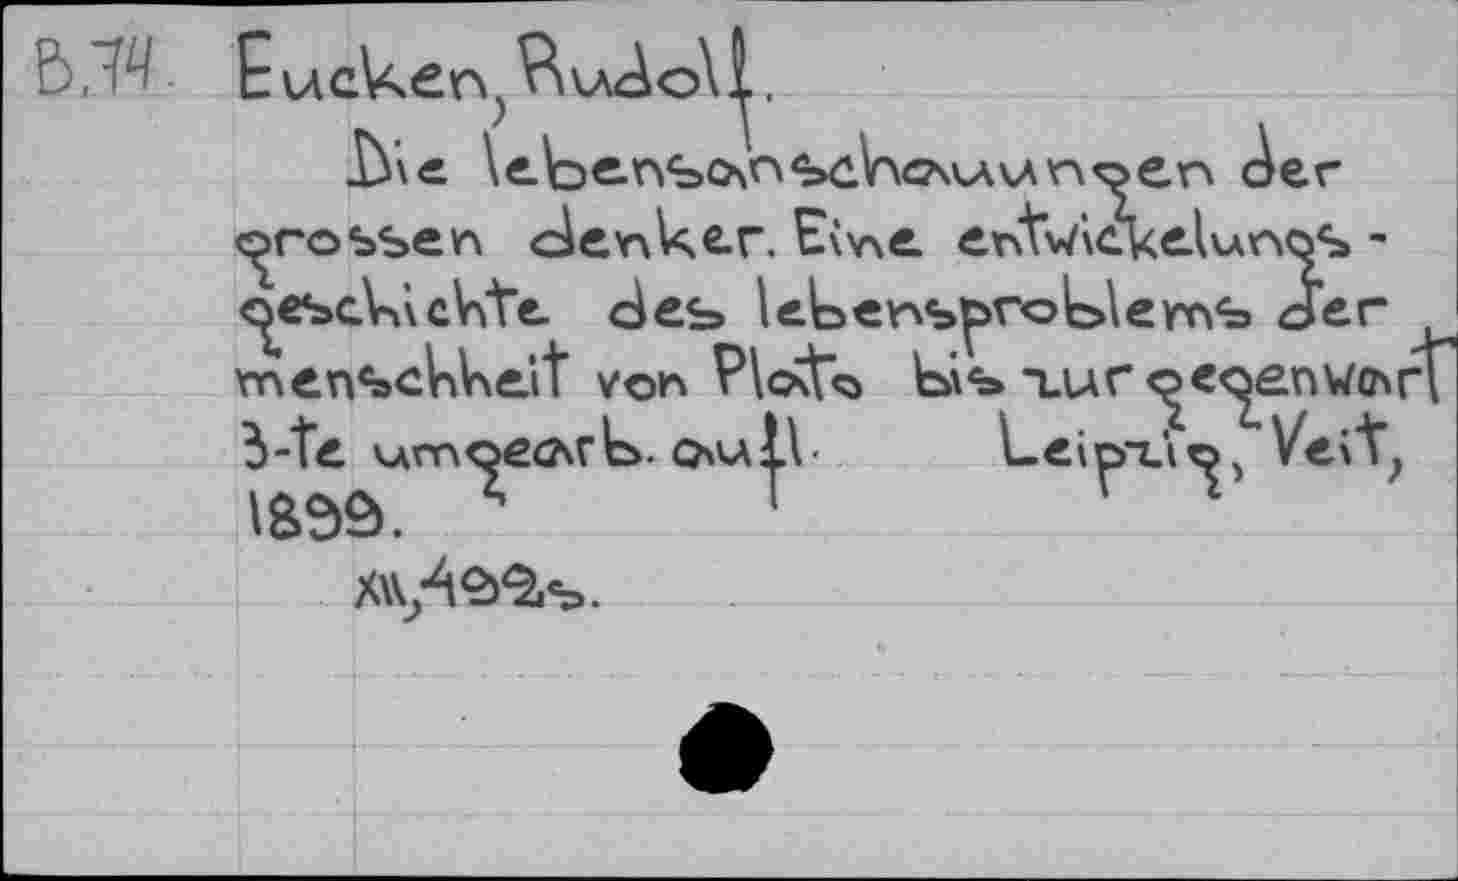 B.74 Eucken, Rudolf.
Die lebensanschauungen der
grossen denker. Eine entwickelungs-
geschichte des lebensproblems der
menschheit von Plato bis zur gegenwart
3-te umgearb. aufl. Leipzig, Veit,
1899.
XII, 492 s.